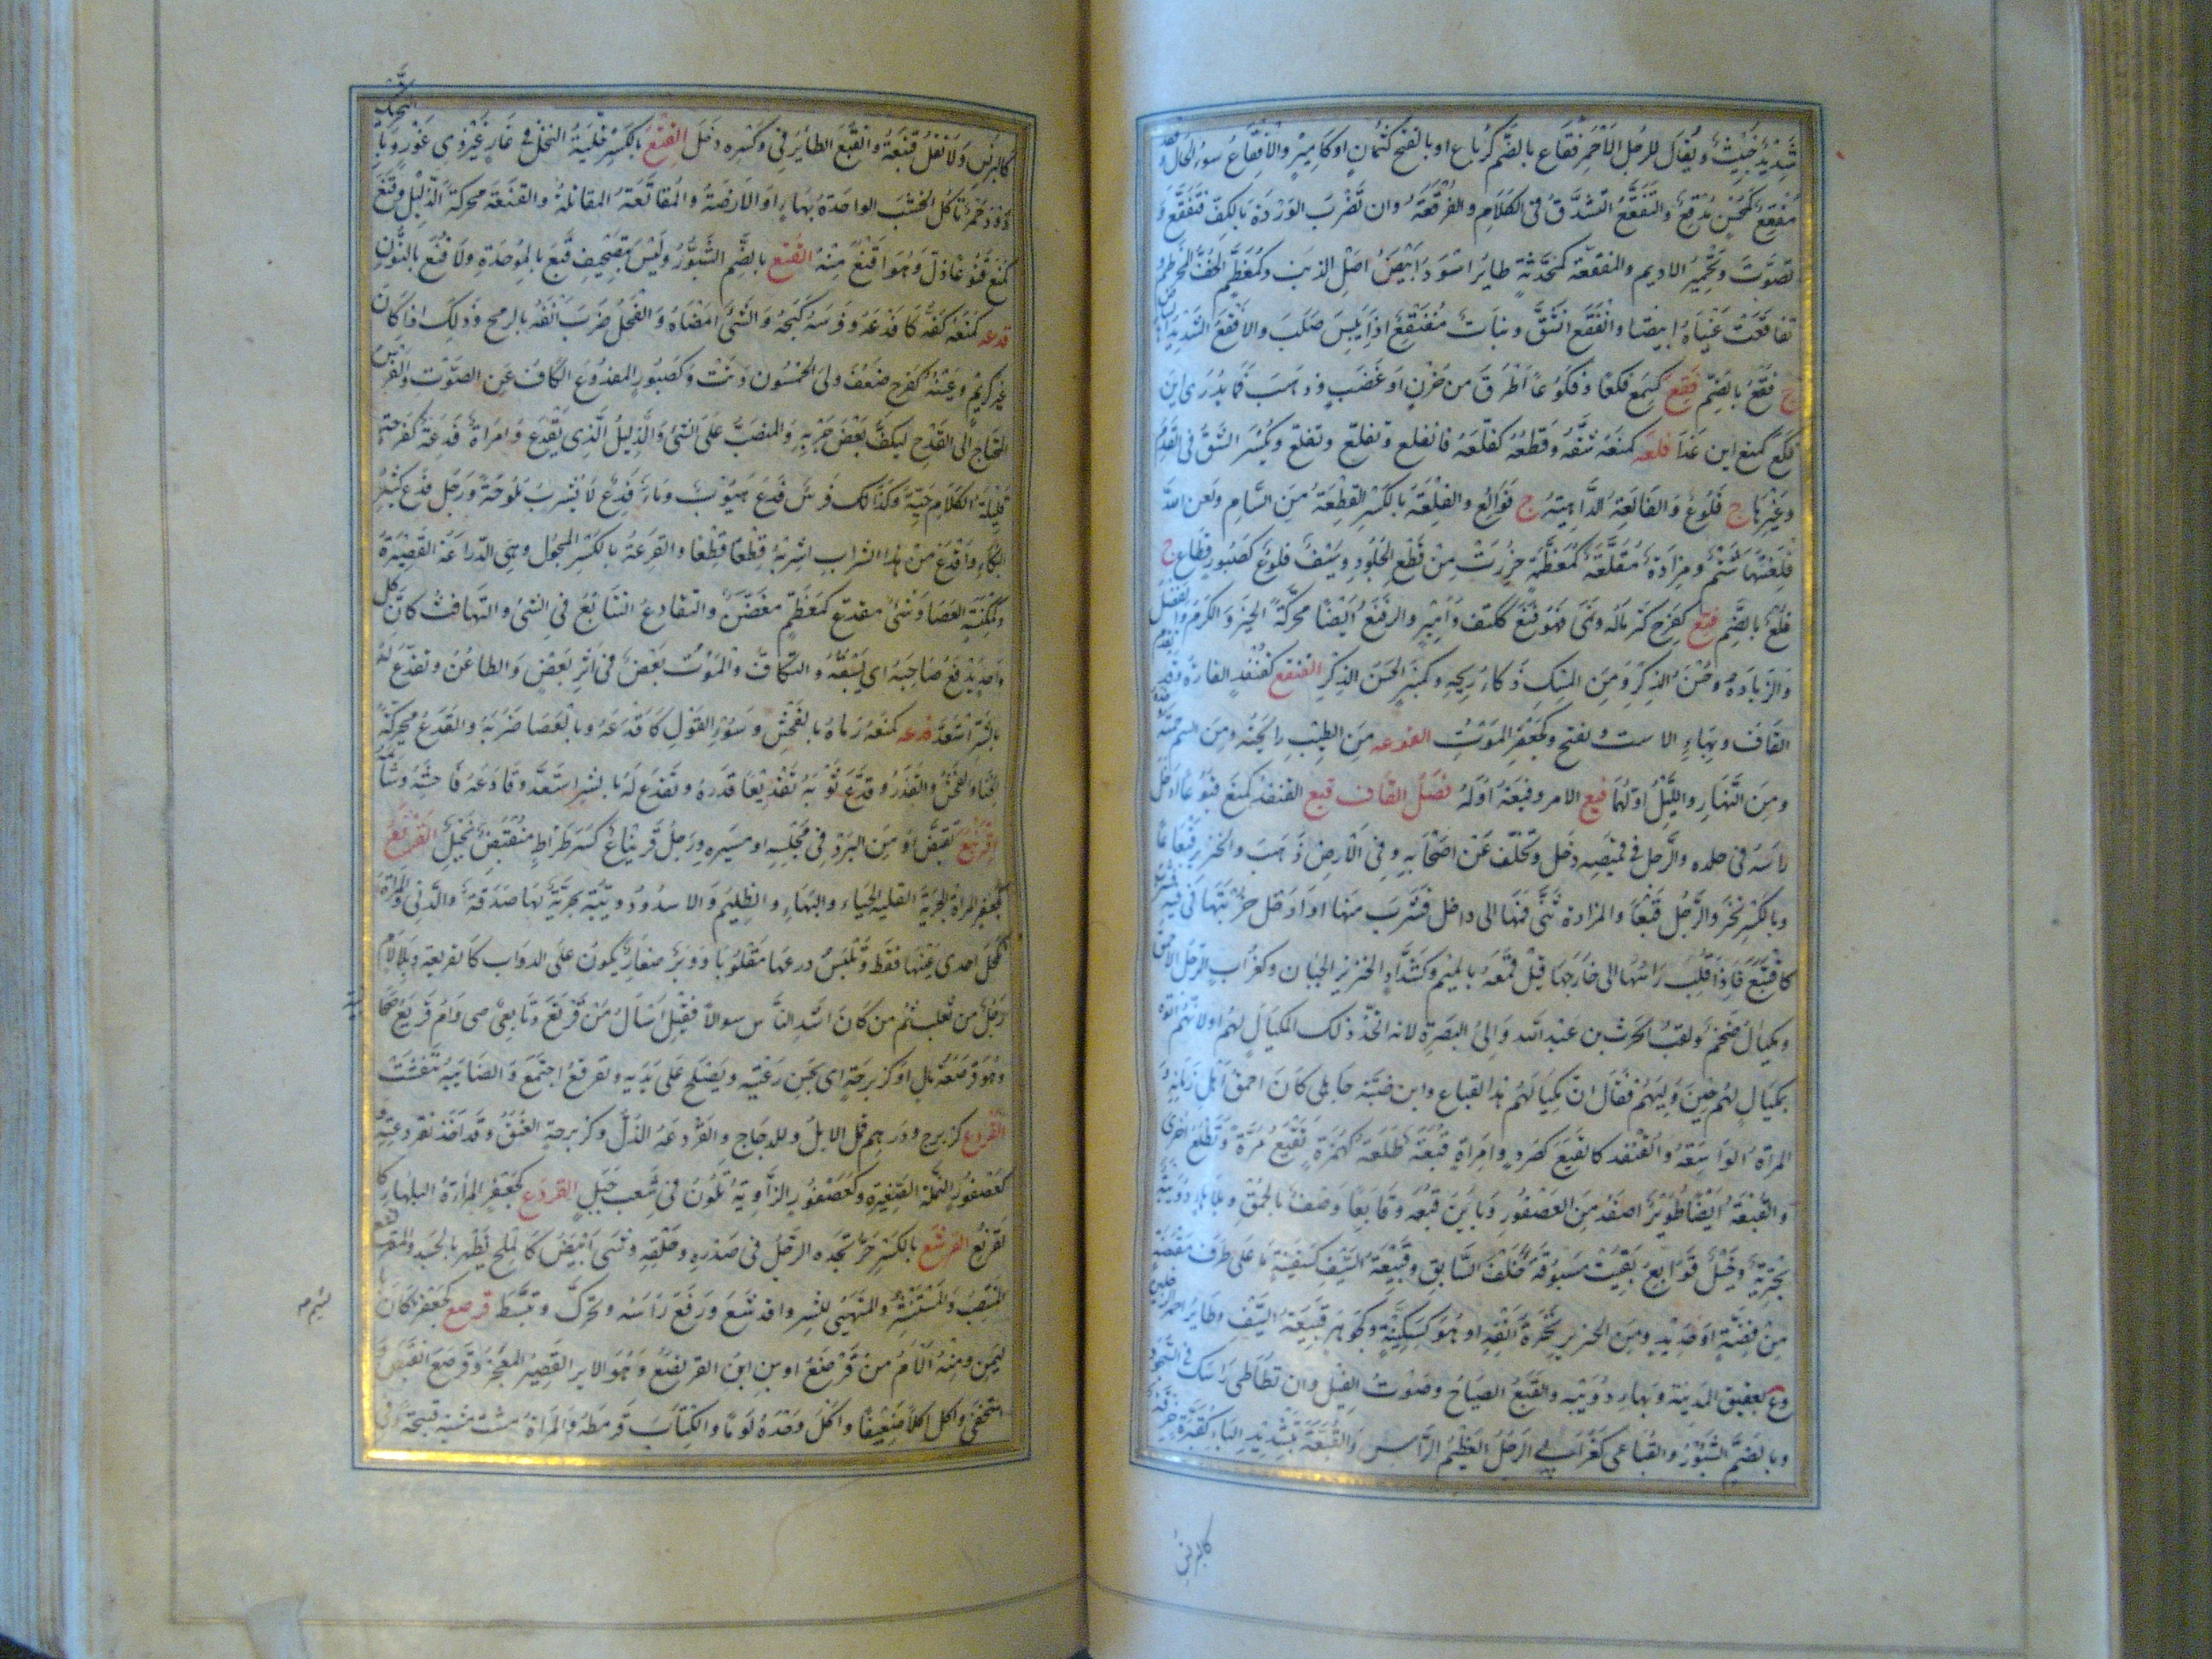 شديد خبيث ويقال للرجل الاحمر فقاع بالضم كرباع او بالفتح كثمان او كامير والافقاع سوء الحال وفقر
مفقع كمحسن مدقع والتفقع التشدق في الكلام والفرقعة وان تضرب الوردة بالكف فتفقع و
تصوت وتحمير الاديم والمفقعة كمحدثة طاير اسود ابيض اصل الذنب وكمعظم الخف المخرطم و
تفاقعت عيناه ابيضتا وانفقع انشق ونبات منفقع اذا يبس صلب والافقع الشديد البياض
ج فقع بالضم فكع كسمع فكعا وفكوعا اطرق من حزن او غضب وذهب فما يدرى اين
فكع كمنع اين غدا فلعه كمنعه شقه وقطعه كفلعه فانفلع وتفلع وتفلع ويكسر الشق في القدم
وغيرها ج فلوع والفالعة الداهية ج فوالع والفلعة بالكسر القطعة من السنام ولعن الله
فلعتها شتم ومزادة مفلعة كمعظمة خرزت من قطع الجلود وسيف فلوع كصبور قطاع ج
فلع بالضم فنع كفرح كثر ماله ونمى فهو فنع ككتف وامير والفنع ايضا محركة الخير والكرم والفضل
والزيادة وحسن الذكر ومن المسك ذكاء ريحه وكمنبر الحسن الذكر الفنقع كقنفذ الفارة وقد تقدم
القاف وبهاء الاست وتفتح وكجعفر الموت الفوعه من الطيب رايحته ومن السم حمته
ومن النهار والليل اولهما فيع الامر وفيعته اوله فصل القاف قبع القنفذ كمنع قبوعا ادخل
راسه في جلده والرجل في قميصه دخل وتخلف عن اصحابه وفي الارض ذهب والخنزير قبعا
وبالكسر نخر والرجل قبعا والمزادة ثنى فمها الى داخل فشرب منها او ادخل خربتها في فيه
كاقتبع فاذا قلب راسها الى خارجها قيل قمعه بالميم وكشداد الخنزير الجبان وكغراب الرجل الاحمق
ومكيال ضخم ولقب الحرث بن عبد الله والى البصرة لانه اتخذ ذلك المكيال لهم او لانهم اتوه
بمكيال لهم حين وليهم فقال ان مكيالهم هذا لقباع وابن ضبة جاهلى كان احمق اهل زمانه و
المراة الواسعة والقنفد كالقبع كصرد وامراة قبعة طلعة كهمزة تقبع مرة وتطلع اخرى
والقبعة ايضا طويئر اصغر من العصفور ويا ابن قبعة وقابعا وصف بالحمق وبلا هاء دويبة
بحرية وخيل قوابع بقيت مسبوقة خلف السابق وقبيعة السيف كسفينة ما على طرف مقبضه
من فضة او حديد ومن الخنزير نخرة انفه او هو كسكينة وكجوهر قبيعة السيف وطاير احمر الرجلين
وع بعقيق المدينة وبهاء دويبة والقبع الصياح وصوت الفيل وان تطاطى راسك في السجود
وبالضم الشبور والقباعى كغرابي الرجل العظيم الراس والقبعة بتشديد الباء كقبرة خرقة
كالبرنس
كالبرنس ولا تقل قنبعة وانقبع الطائر في وكره دخل القتع بالكسر خلية النحل في غار غير ذى غور وبالتحريك
دود حمر تاكل الخشب الواحدة بهاء او الارضة والمقاتعة المقاتلة والقتعة محركة الذليل وقتع
كمنع قتوعا ذل وهو اقتع منه القثع بالضم الشبور وليس بتصحيف قبع بالموحدة ولا قنع بالنون
قدعه كمنعه كفه كاقدعه وفرسه كبحه والشئ امضاه والفحل ضرب انفه بالرمح وذلك اذا كان
غير كريم وعينه كفرح ضعف ولى الخمسون دنت وكصبور المقدوع الكاف عن الصوت والفرس
المحتاج الى القدح ليكف بعض جريه والمنصب على الشئ والذليل الذى يقدع وامراة قدعة كفرحة
قليلة الكلام حيية وكذلك فرس قدع هيوب وماء قدع لا يشرب ملوحة ورجل قدع كثير
البكاء واقدع من هذا الشراب اشربه قطعا قطعا والقدعة بالكسر المجول وهى الدراعة القصيرة
وكمكنسة العصا وشئ مقدع كمعظم مغضن والتقادع التتابع في الشئ والتهافت كان كل
واحد يدفع صاحبه اى يسبقه والتكاف والموت بعض في اثر بعض والطاعن وتقدع له
بالشر استعد قذعه كمنعه رماه بالفحش وسوء القول كاقذعه وبالعصا ضربه والقذع محركة
الخنا والفحش والقذر وقذع ثوبه تقذيعا قذره وتقذع له بالشر استعد وقاذعه فاحشه وشاتمه
اقرنبع تقبض او من البرد في مجلسه او مسيره ورجل قرنباع كسرطراط منقبض بخيل القرثع
كجعفر المراة الجرية القليلة الحياء والبلهاء والظليم والاسد ودويبة بحرية لها صدفة والدنى والمراة
تكحل احدى عينيها فقط وتلبس درعها مقلوبا ووبر صغار يكون على الدواب كالقرثعة وبلا لام
رجل من تغلب ثم من كان اشد الناس سوالا فقيل اسال من قرثع وتابعى صى وام قرثع صحابية
وهو قرثعة مال او كزبرجة اى يحسن رعيته ويصلح على يديه وتقرثع اجتمع والضائنة تنفشت
القردع كزبرج ودرهم قمل الابل والدجاج والقردعة الذل وكزبرجة العنق وقد اخذ بقردعته و
كعصفور النملة الصغيرة وكعصفورة الزاوية تكون في شعب جبل القرذع كجعفر المراة البلهاء كا
لقرثع القرشع بالكسر حر تجده الرجل في صدره وحلقه وشى ابيض كالملح يظهر بالجسد والمقرنشع
المنتصب والمستبشر والمتهيئ للشر واقرنشع ورفع راسه وتحرك وتبسط قرصع كجعفر كان
ليمن ومنه الام من قرصع او من ابن القرصع وهو الاير القصير المعجز وقرصع انقبض و
استخفى واكل اكلا ضعيفا واكل وحده لوما والكتاب قرمطه والمراة مشت مشية قبيحة وفى